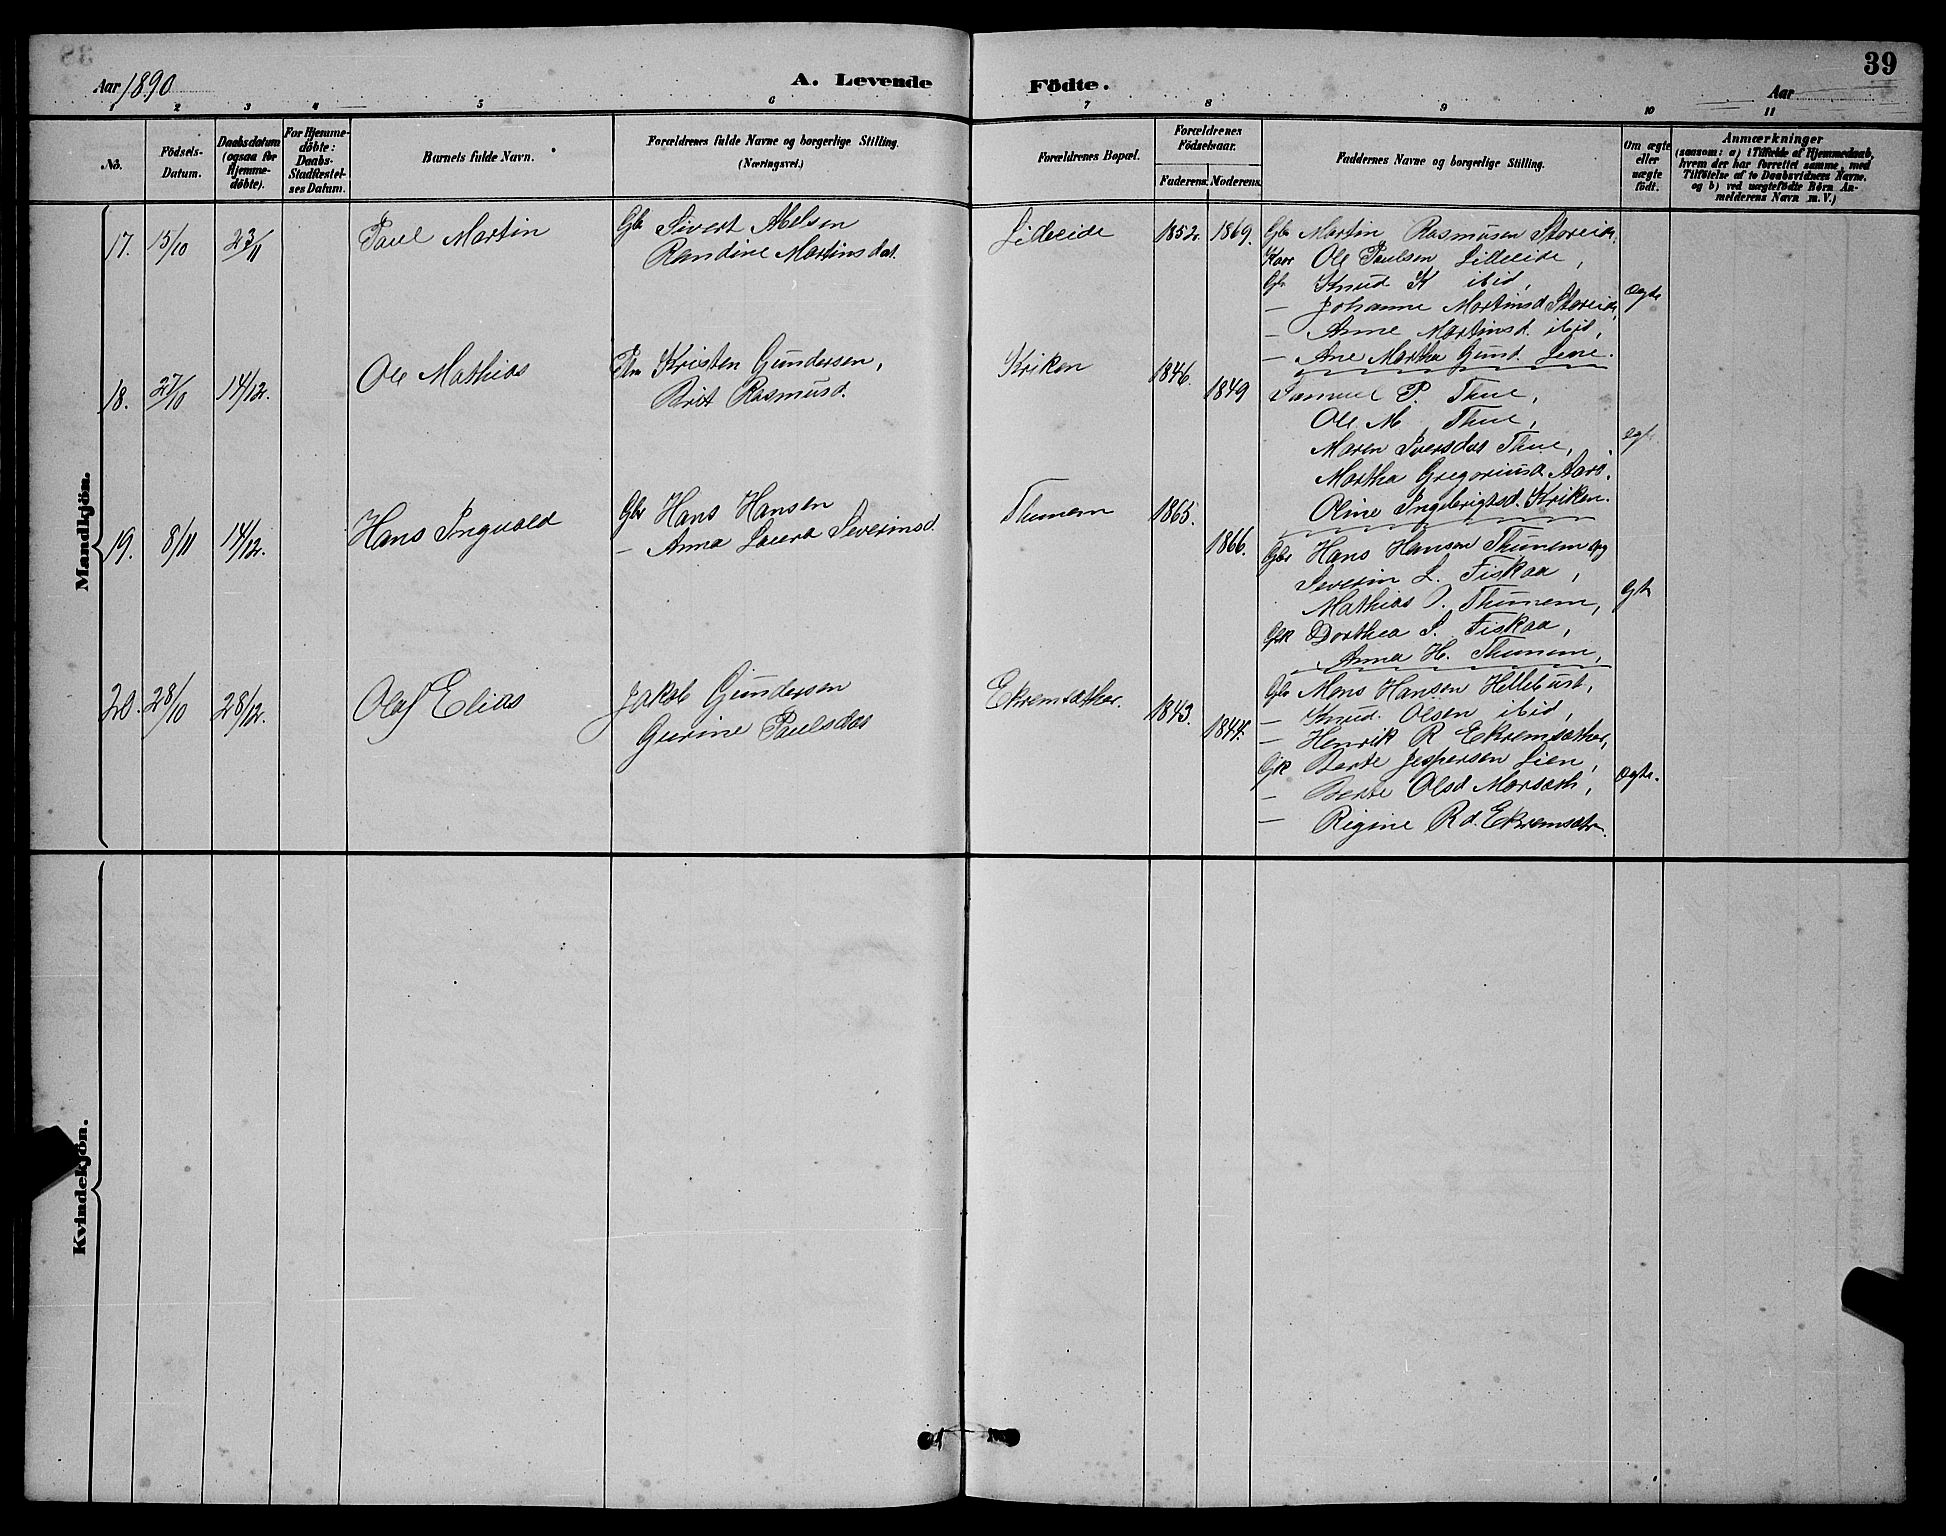 39
Aar 1890
A. Levende Födte.
Aar
1 2 3 4 5 6 7 8 9 10 11
No.
Födsels-Datum.
Daabsdatum (ogsaa for Hjemme-döbte).
For Hjemme-döbte: Daabs-Stadfæstel-ses Datum.
Barnets fulde Navn.
Forældrenes fulde Navne og borgerlige Stilling.
(Næringsvei.)
Forældrenes Bopæl.
Forældrenes Födselsaar.
Faderens. Moderens.
Faddernes Navne og borgerlige Stilling.
Om ægte eller uægte födt.
Anmærkninger
(saasom: a) i Tilfælde af Hjemmedaab,
hvem der har forrettet samme, med
Tilföielse af to Daabsvidners Navne,
og b) ved uægtefödte Börn An-
melderens Navn m. V.)
Mandkjön.
17. 15/10 23/11 Paul Martin
Gbr Sivert Abelsen
Randine Martinsdat.
Lideeide 1852. 1869.
Gbr Martin Rasmusen Storeide,
Kaar Ole Paulsen Lilleeide,
Gbr Knud K ibid,
— Johanne Martinsd Storeide,
— Anne Martinsd. ibid,
— Ane Martha Gund. Lene.
Ægte
18. 27/10 14/12. Ole Mathias
Kristen Gundersen,
Brit Rasmusd.
Kriken 1846. 1849
Samuel P. Thue,
Ole M Thue,
Maren Iversdat Thue,
Martha Gregoriusd. Aarø.
Oline Ingebrigtsd. Kriken.
19. 8/11 14/12. Hans Ingvald
Gbr Hans Hansen
— Anna Laura Severinsd
Thunem 1865. 1866.
Gbr Hans Hansen Thunem og
Severin L. Fiskaa,
Mathias J. Thunem,
Gjk Dorthea S. Fiskaa,
Anna H. Thunem,
20. 28/10 28/12. Olaf Elias
Jakob Gundersen
Gurine Paulsdat
Ekremsæther. 1843. 1844.
Gbr Mons Hansen Hellebust,
— Knud. Olsen ibid,
— Henrik R Ekremsæther,
Gjk Berte Jespersen Lien,
— Berte Olsd Morsæth,
— Rigine R d. Ekremsætr.
Ægte.
Kvindekjön.